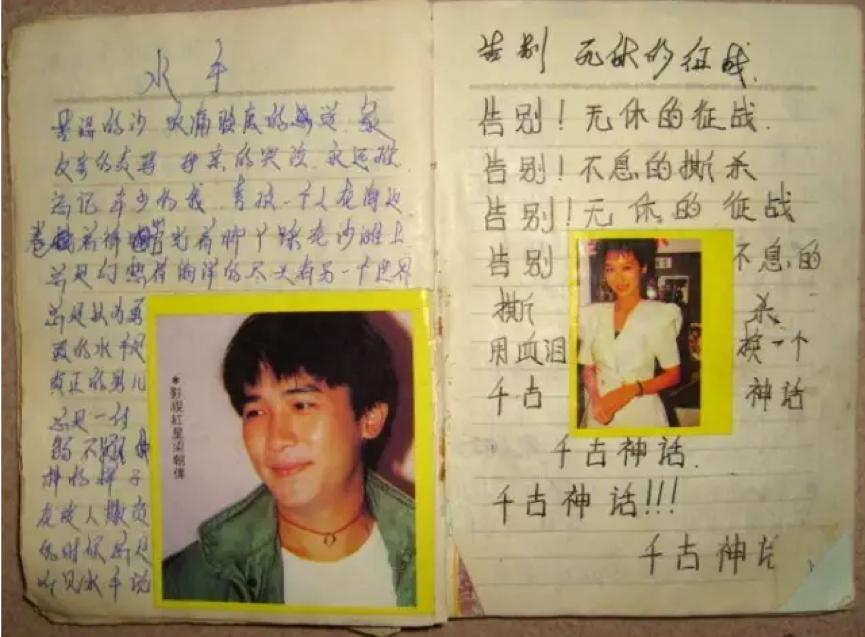 水手
苦涩的沙 吹痛脸庞的感觉 象
父亲的责骂 母亲的哭泣 永远难
忘记 年少的我 喜欢一个人在海边
卷 着裤 光着脚丫踩在沙滩上
总是幻想着海洋的尽头有另一个世界
总是以为勇
敢的水手是
真正的男儿
总是一付
弱不
样的样子
在受人欺负
的时候总是
听见水手说
*影視紅星梁朝偉
告别 无休的征战
告别！无休的征战
告别！不息的撕杀
告别！无休的征战
告别 不息的
撕 杀
用血泪 换一个
千古 神话
千古神话
千古神话!!!
千古神话